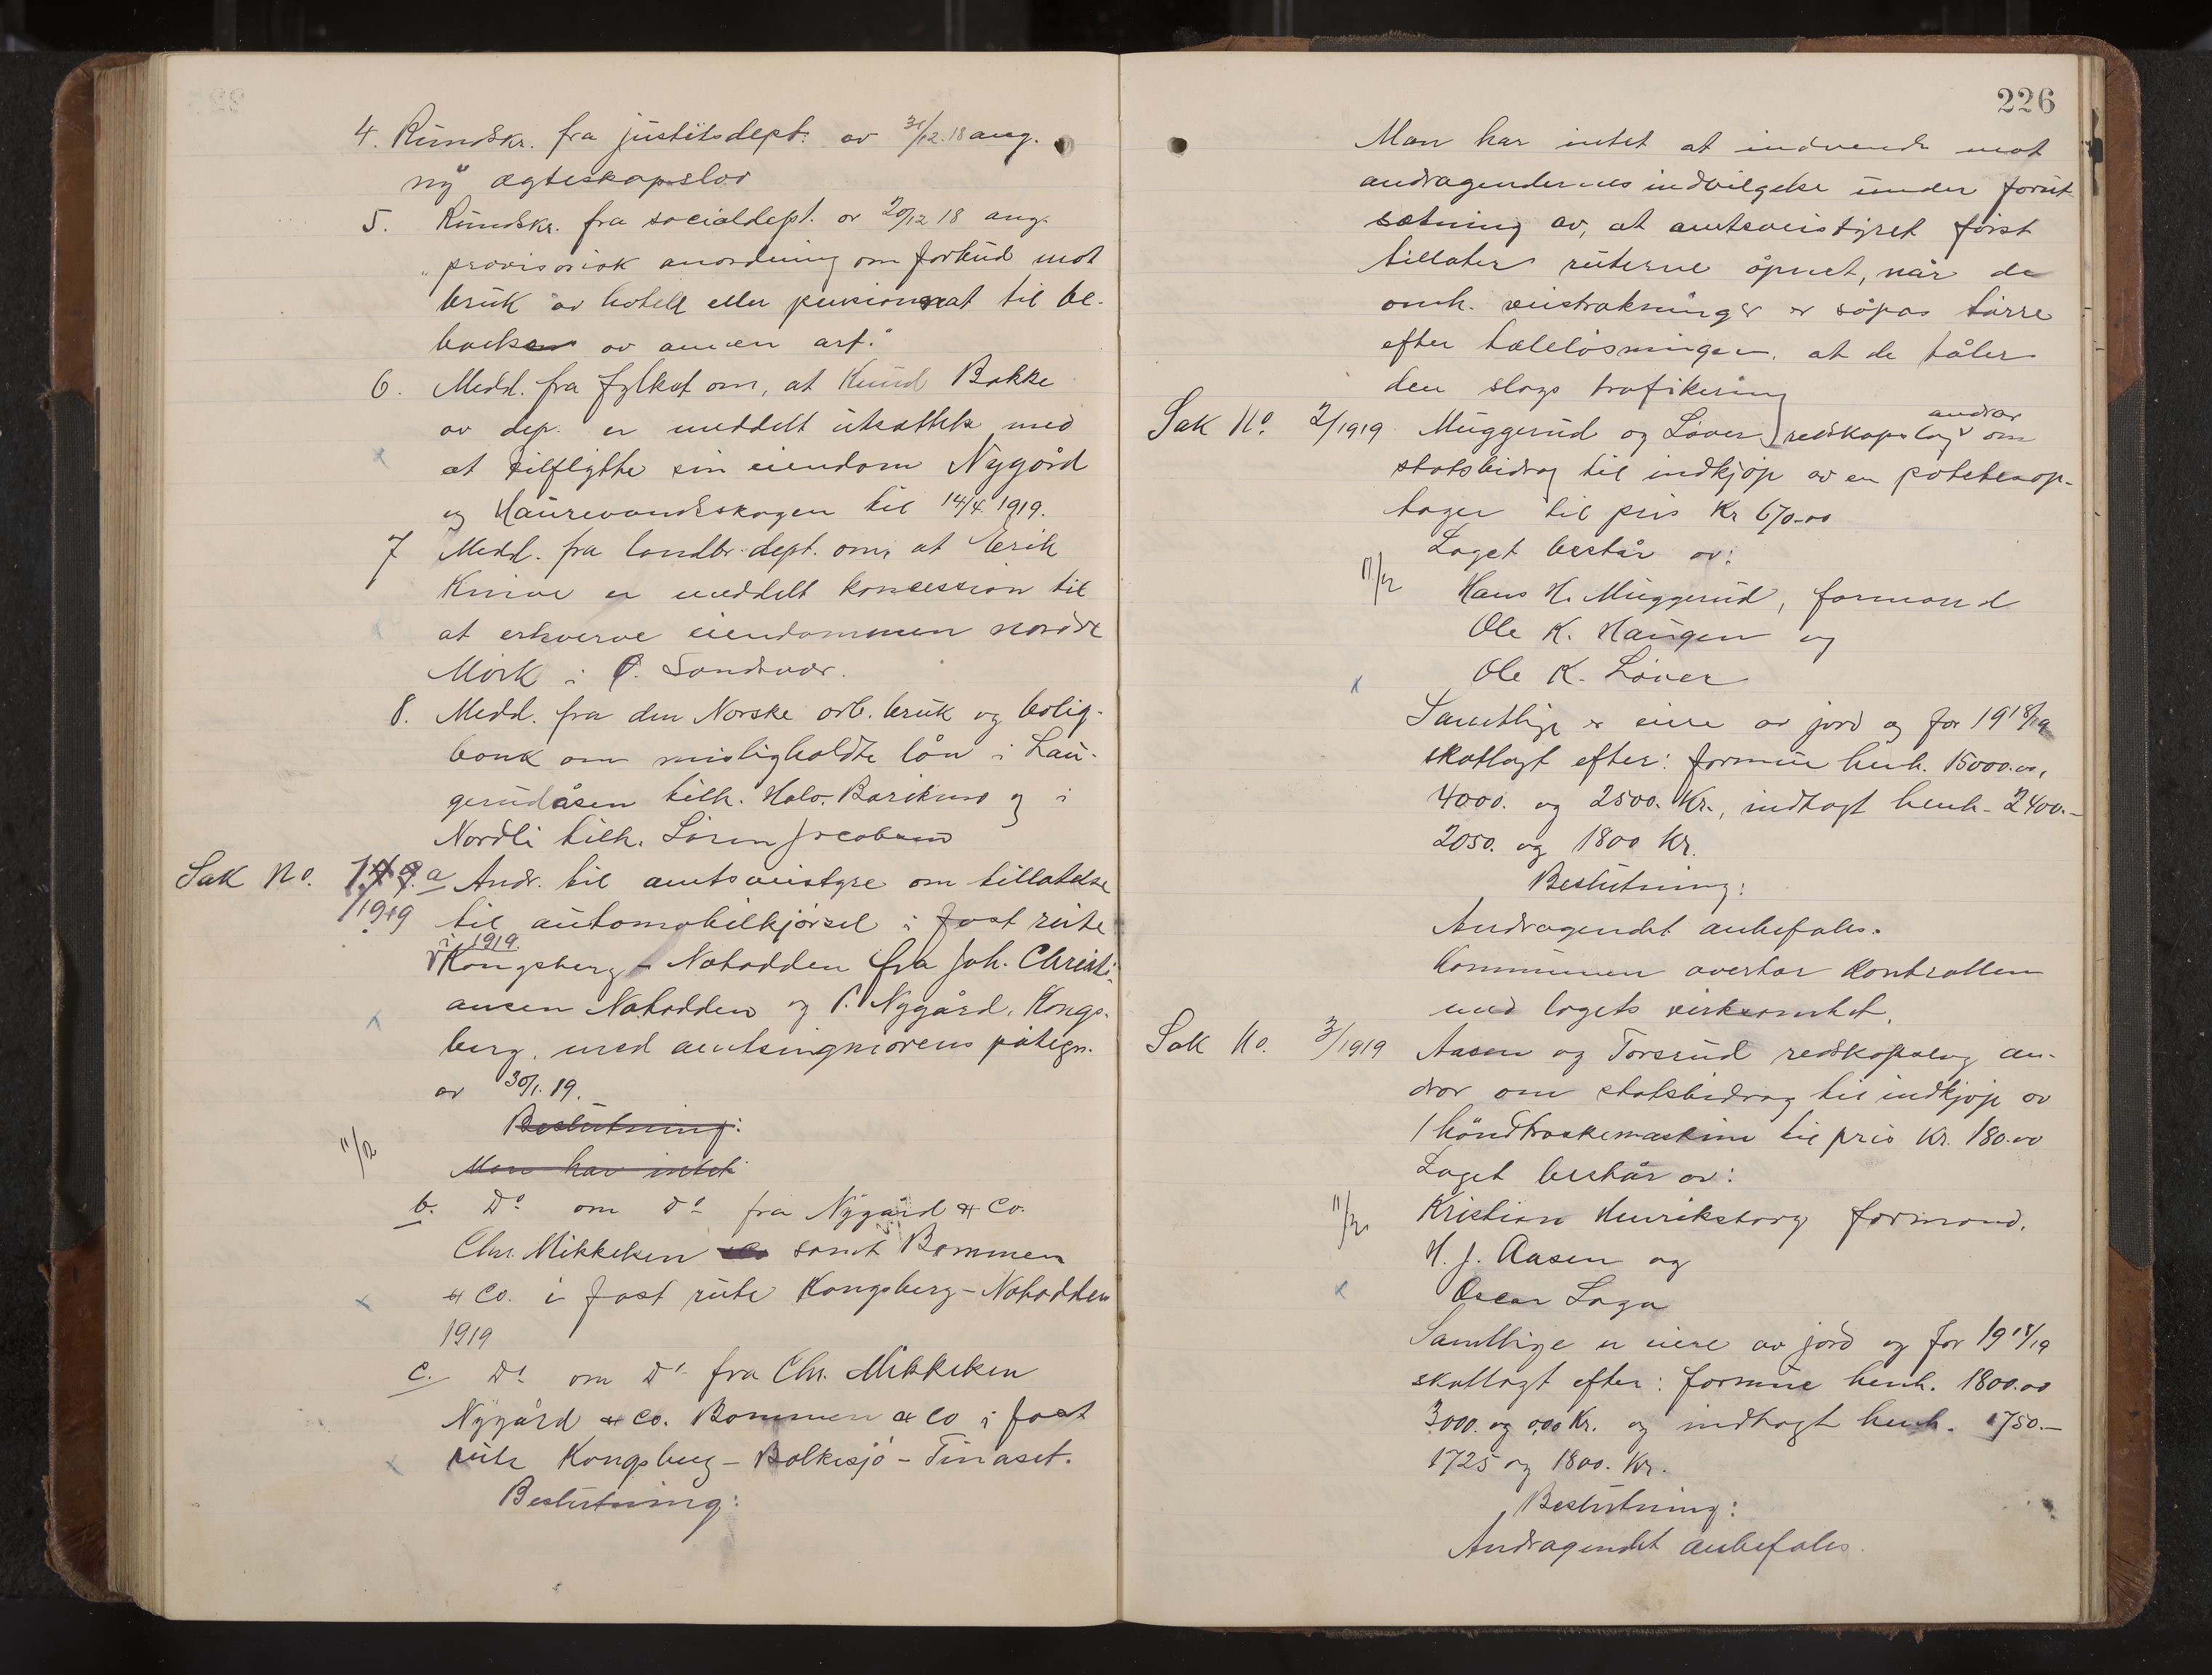 4. Rundskr. fra justitsdept. av 31/12.18 ang.
ny ægteskapslov
5. Rundskr. fra socialdept. av 20/12 18 ang.
"provisorisk anordning om forbud mot
bruk av hotell eller pensionat til be-
av annen art."
6. Medd. fra fylket om, at Knud Bakke
av dep. er meddelt utsættelse med
at tilflytte sin eiendom Nygård
og Haurevandsskogen til 14/4 1919.
7 Medd. fra landbr. dept. om, at Erik
Knive er meddelt konsession til
at erhverve eiendommen nordre
Mörk i Ø. Sandsvær.
8. Medd. fra den Norske arb. bruk og bolig-
bank om misligholdte lån i Lau-
gerudåsen tilh. Halv. Barikmo og i
Nordli tilh. Sören Jacobsen
Sak No. 1 a Andr. til amtsveistyre om tillatelse
/1919 til automobilkjörsel i fast rute
i 1919.
Kongsberg - Notodden fra Joh. Christi-
ansen Notodden og P. Nygård, Kongs-
berg, med amtsingeniörens påtegn.
av 30/1. 19.
Beslutning:
11/2
Man har intet
b. Do om Do fra Nygård & Co.
Chr. Mikkelsen samt Bommen
& Co. i fast rute Kongsberg - Notodden
1919
c. Do om Do fra Chr. Mikkelsen
Nygård & Co. Bommen & Co i fast
rute Kongsberg - Bolkesjö - Tinoset.
Beslutning:
226
Man har intet at indvende mot
andragendernes indvilgelse under forut-
sætning av, at amtsveistyret först
tillater ruterne åpnet, når de
omh. veistrækninger er såpas törre
efter tælelösningen, at de tåler
den slags trafikering
andrar
Sak No. 2/1919 Muggerud og Löver redskapslag om
statsbidrag til indkjöp av en potetesop-
tager til pris Kr 670.00
Laget består av:
11/2
Hans H. Muggerud, formand
Ole K. Haugen og
Ole K. Löver
Samtlige er eiere av jord og for 1918/19
skatlagt efter: formue henh. 15000.00,
4000. og 2500. Kr., indtægt henh. 2400.-
2050. og 1800 Kr.
Beslutning:
Andragendet anbefales.
Kommunen overtar kontrollen
med lagets virksomhet.
Sak No. 3/1919 Aasen og Torsrud redskapslag an-
drar om statsbidrag til indkjöp av
1 håndtræskemaskine til pris Kr. 180.00
Laget består av:
11/2
Kristian Henriksborg formand,
H. J. Aasen og
Oscar Laga
Samtlige er eiere av jord og for 1918/19
skatlagt efter: formue henh. 1800.00
3000. og 000 Kr. og indtægt henh. 1750.-
1725 og 1800. Kr.
Beslutning:
Andragendet anbefales.